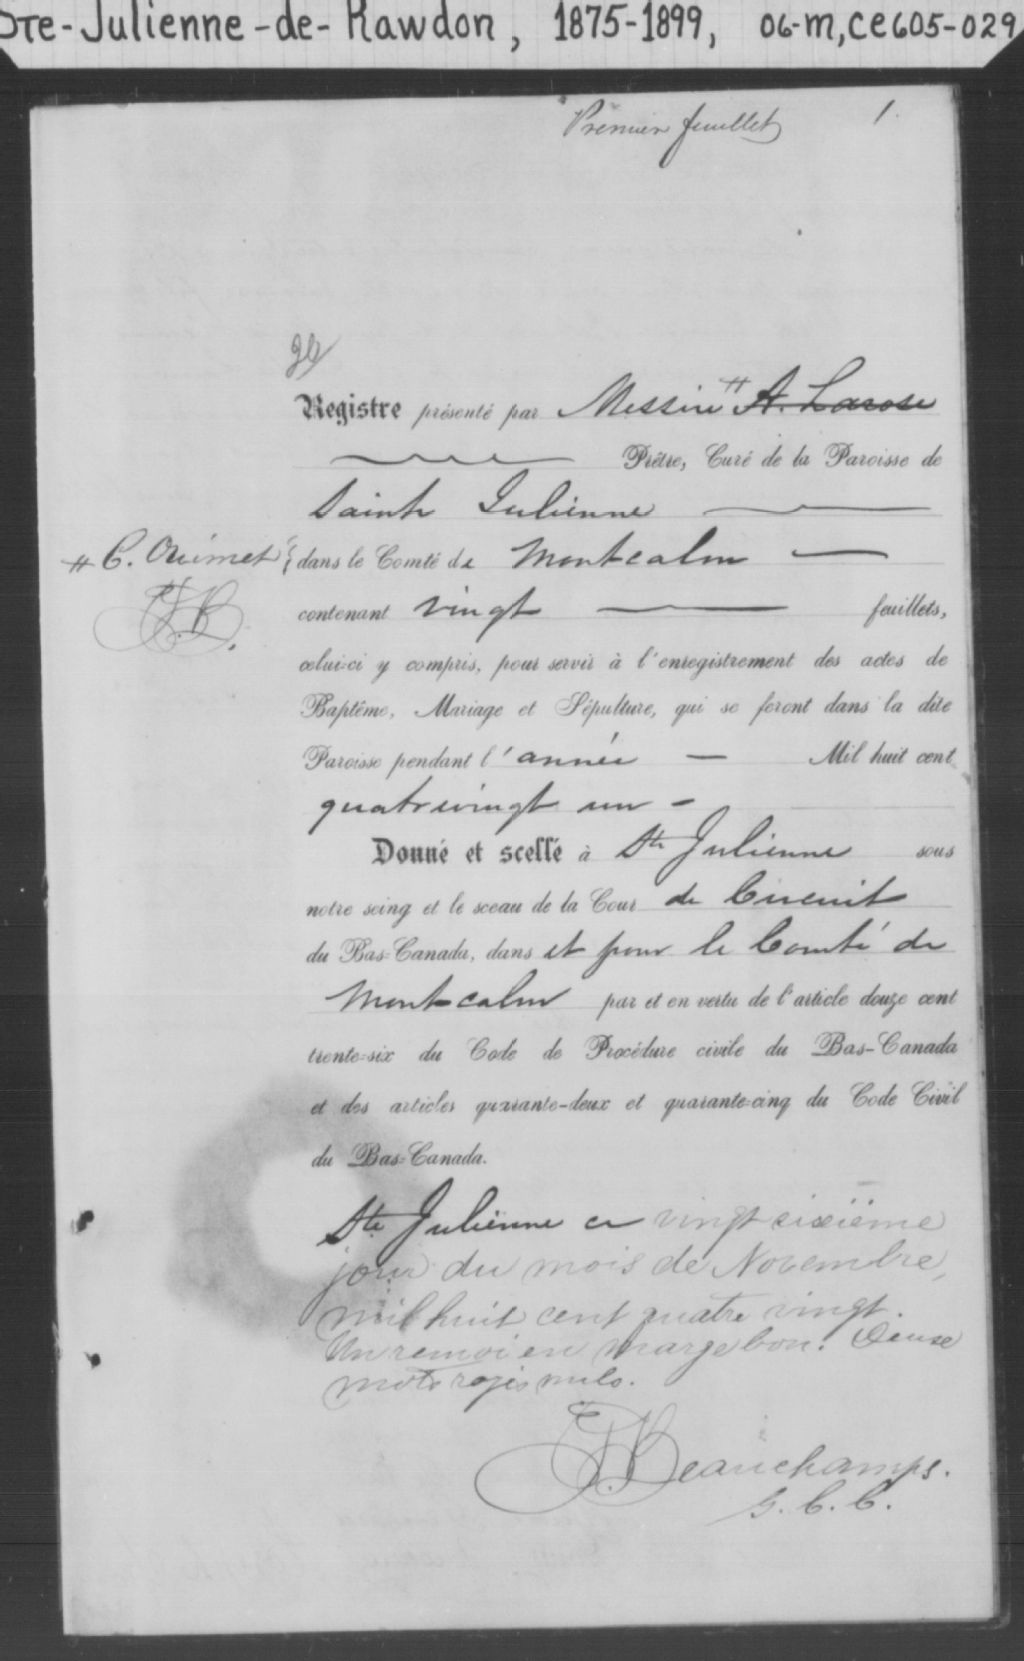 Ste-Julienne-de-Rawdon, 1875-1899, 06-M, CE605-029
Premier feuillet 1.
Registre présenté par Messire # A. Larose
Prêtre, Curé de la Paroisse de
Sainte Julienne
# C. Ouimet dans le Comté de Montcalm
contenant vingt feuillets,
celui-ci y compris, pour servir à l'enregistrement des actes de
Baptême, Mariage et Sépulture, qui se feront dans la dite
Paroisse pendant l'année — Mil huit cent
quatrevingt un -
Donné et scellé à Ste Julienne sous
notre seing et le sceau de la Cour de Circuit
du Bas-Canada, dans et pour le Comté de
Montcalm par et en vertu de l'article douze cent
trente-six du Code de Procédure civile du Bas-Canada
et des articles quarante-deux et quarante-cinq du Code Civil
du Bas-Canada.
Ste Julienne ce vingt sixième
jour du mois de Novembre,
mil huit cent quatre vingt.
Un renvoi en marge bon. Deuse
mots rayés nuls.
Beauchamps.
G. C. C.